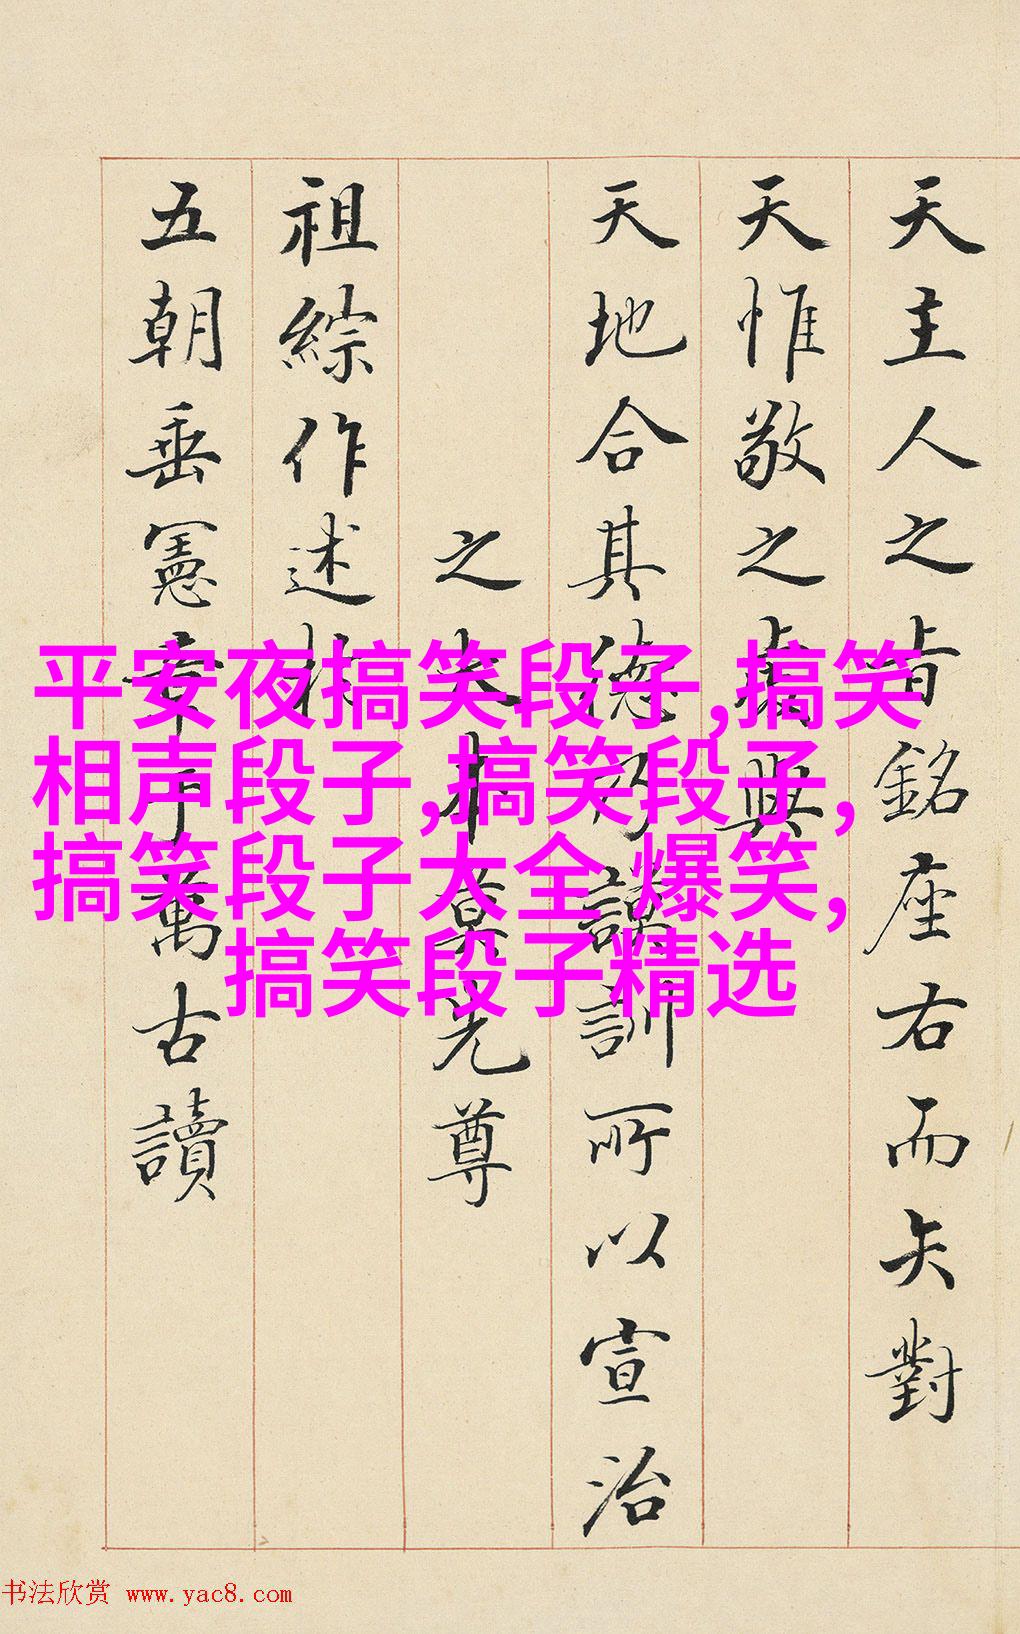 天主人之旨銘座右而矢對
天惟敬之處與
天地合其德乃謨訓所以宣治
之大本莫先尊
祖綜作述於
五朝垂憲章于萬古讀
平安夜搞笑段子,搞笑
相声段子,搞笑段子,
搞笑段子大全 爆笑,
搞笑段子精选
书法欣赏 www.yac8.com